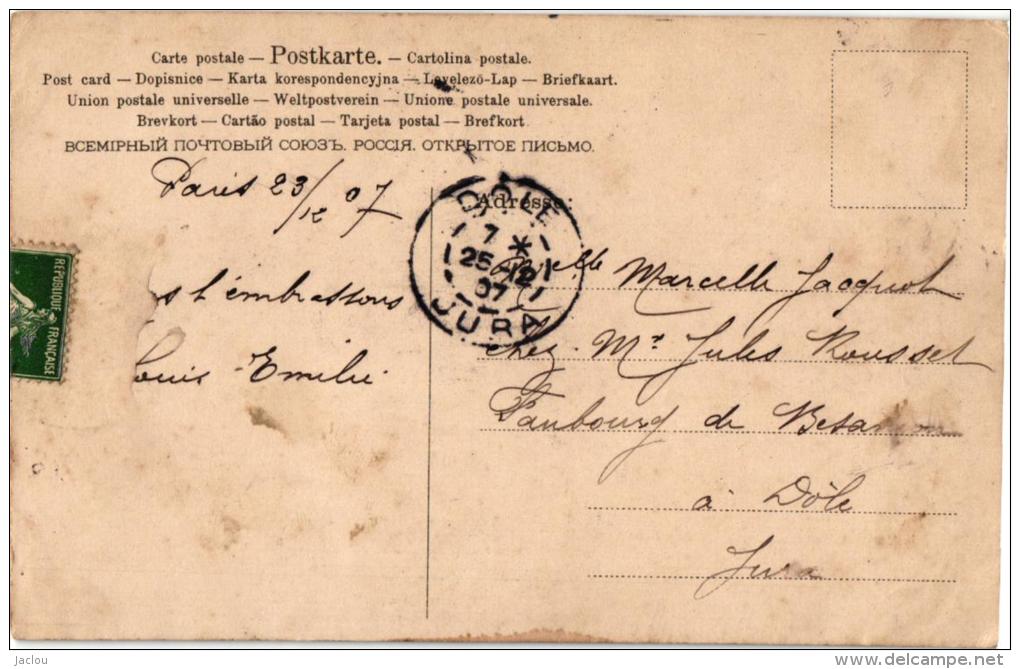 Carte postale — Postkarte. — Cartolina postale.
Post card — Dopisnice — Karta korespondencyjna — Levelező-Lap — Briefkaart.
Union postale universelle — Weltpostverein — Unione postale universale.
Brevkort — Cartão postal — Tarjeta postal — Brefkort
ВСЕМІРНЫЙ ПОЧТОВЫЙ СОЮЗЪ. РОССІЯ. ОТКРЫТОЕ ПИСЬМО.
Paris 23/12 07
t'embrassons
Louis Emilie
REPUBLIQUE FRANÇAISE
DOLE
7 *
25 -12
07
JURA
Adresse:
Melle Marcelle Jacquot
chez Mr Jules Rousset
Faubourg de Besançon
à Dôle
Jura
Jaclou
delcampe.net